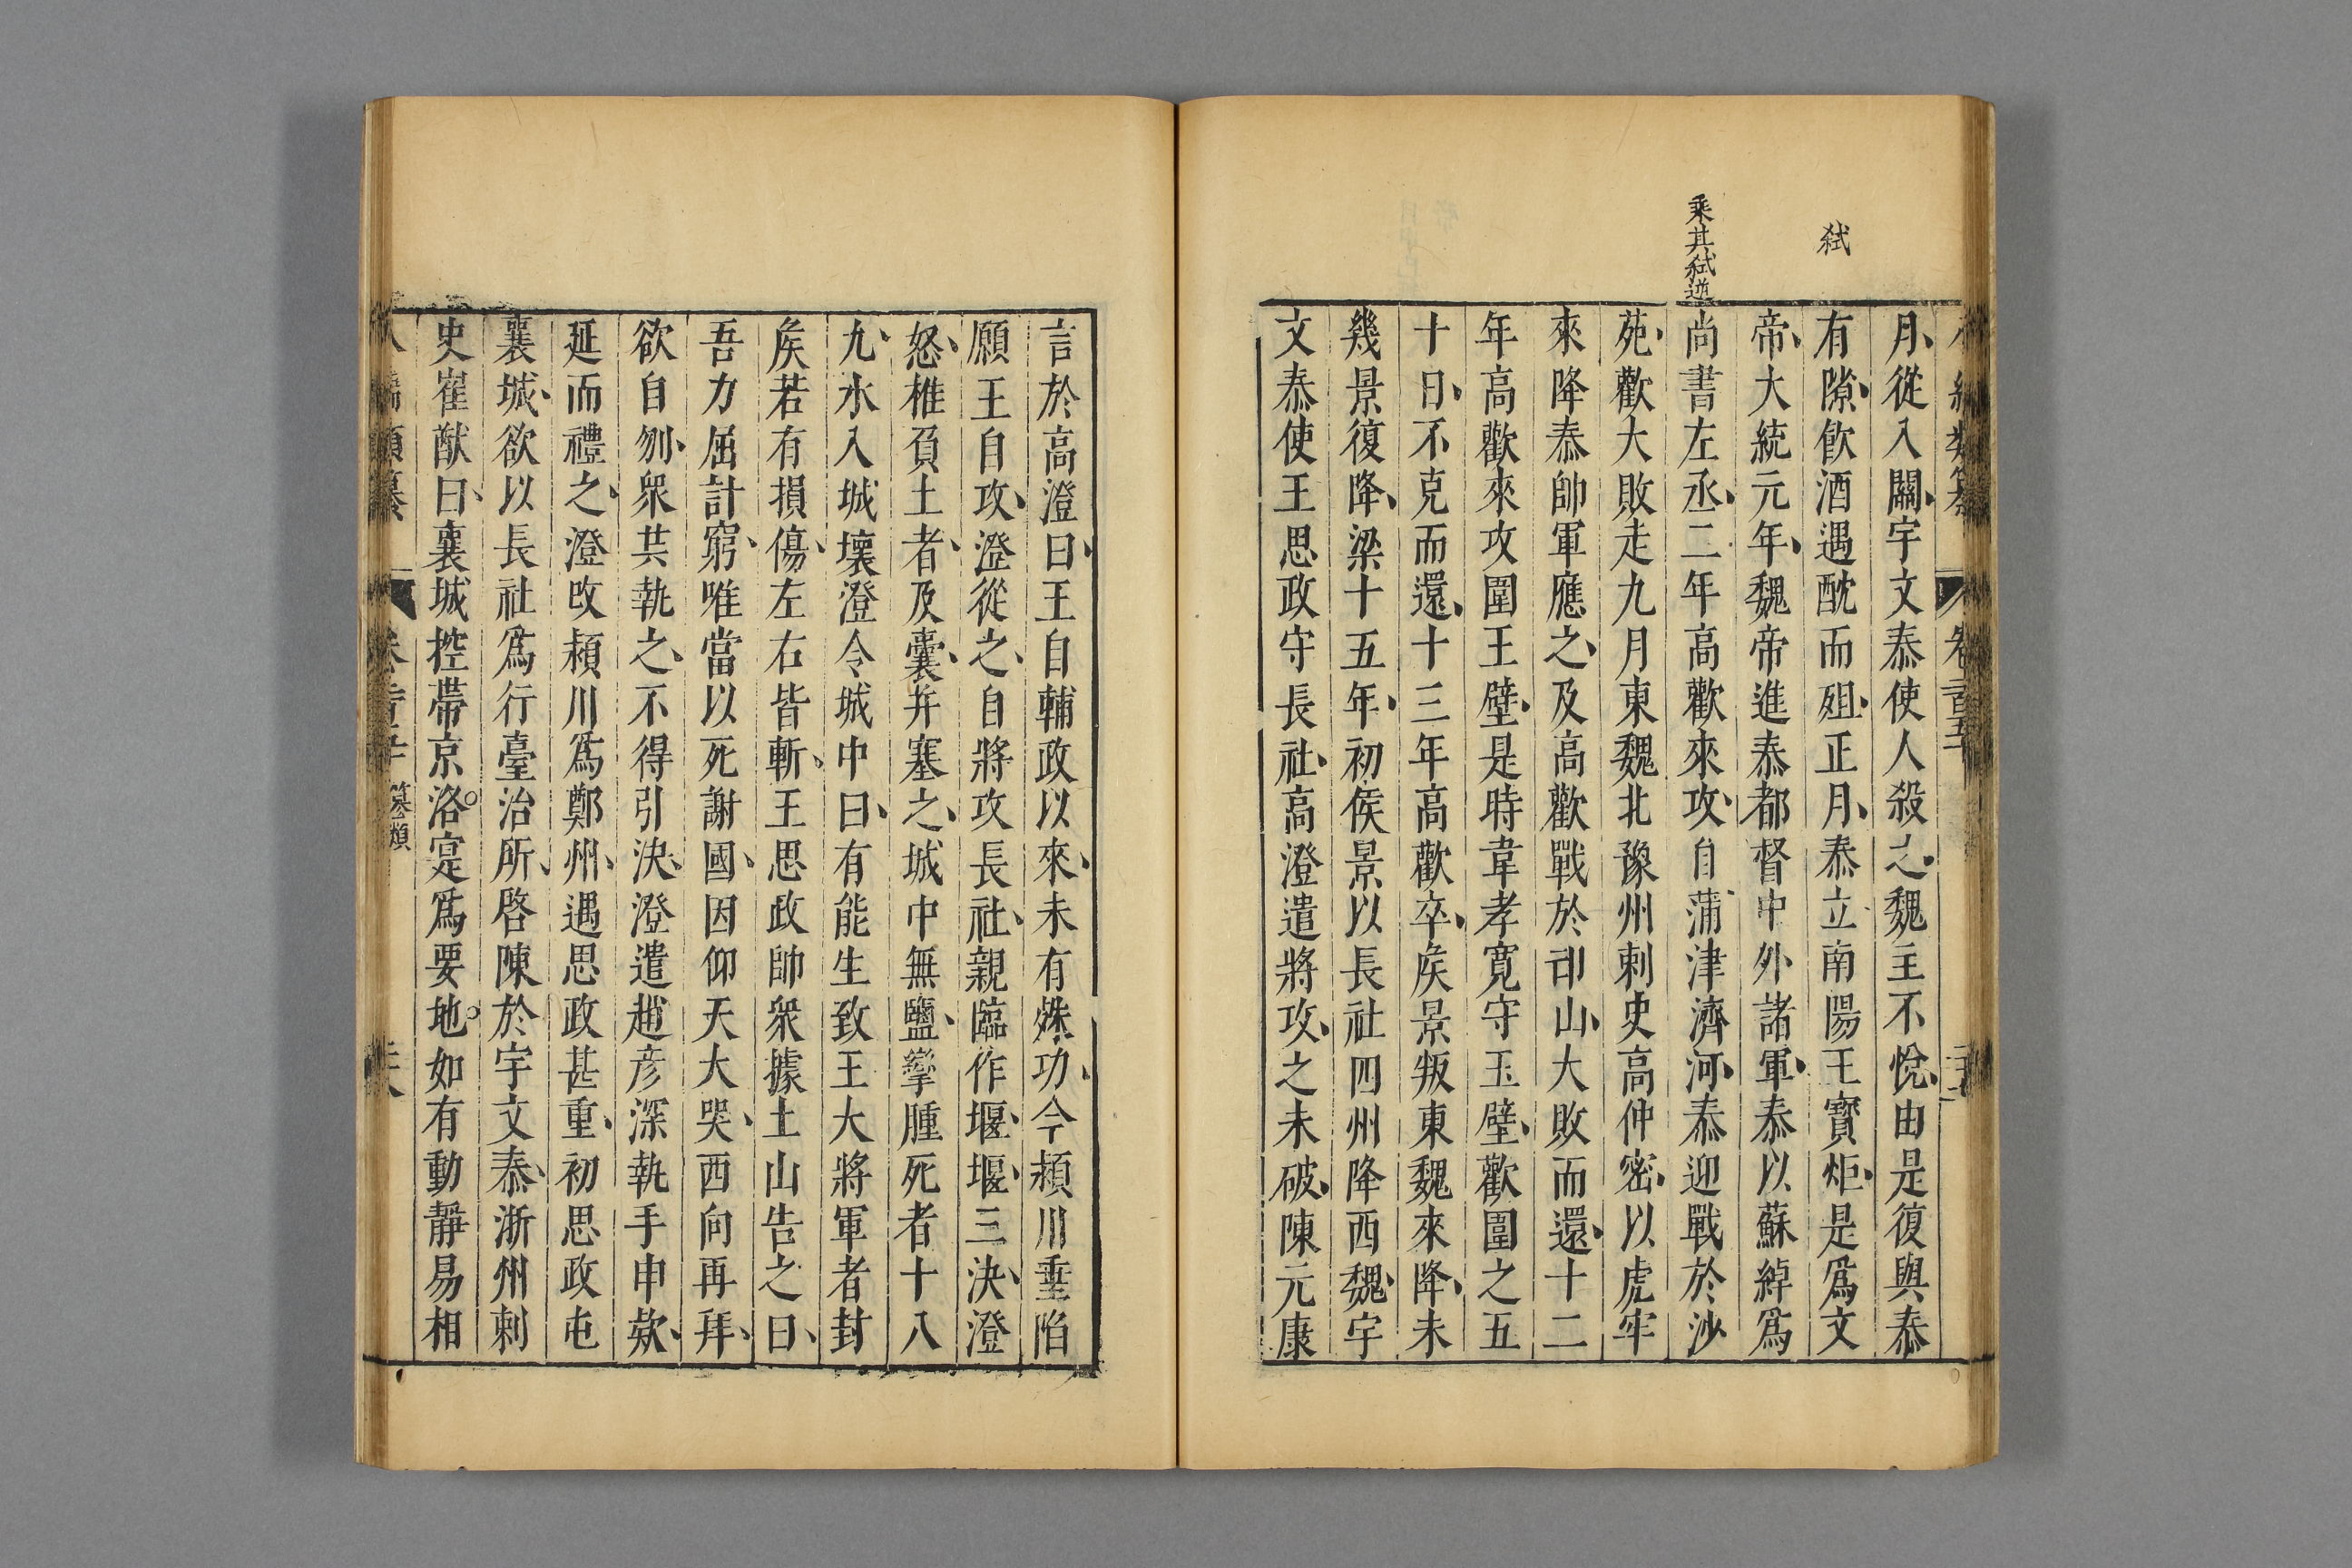 弑
乘其弑逆
月從入關宇文泰使人殺之魏主不悅由是復與泰
有隙飮酒遇酖而殂正月泰立南陽王寳炬是爲文
帝大統元年魏帝進泰都督中外諸軍泰以蘇綽爲
尚書左丞二年高歡來攻自蒲津濟河泰迎戰於沙
苑歡大敗走九月東魏北豫州刺史高仲密以虎牢
來降泰帥軍應之及高歡戰於邙山大敗而還十二
年高歡來攻圍玉壁是時韋孝寛守玉壁歡圍之五
十日不克而還十三年高歡卒矦景叛東魏來降未
幾景復降梁十五年初侯景以長社四州降西魏宇
文泰使王思政守長社高澄遣將攻之未破陳元康
言於高澄曰王自輔政以來未有殊功今頴川垂陷
願王自攻澄從之自將攻長社親臨作堰堰三決澄
怒椎負土者及囊并塞之城中無鹽攣腫死者十八
九水入城壞澄令城中曰有能生致王大將軍者封
矦若有損傷左右皆斬王思政帥衆據土山告之曰
吾力屈計窮唯當以死謝國因仰天大哭西向再拜
欲自刎衆共執之不得引決澄遣趙彦深執手申欵
延而禮之澄改頴川爲鄭州遇思政甚重初思政屯
襄城欲以長社爲行臺治所啓陳於宇文泰浙州刺
史崔猷曰襄城控帶京洛寔爲要地如有動靜易相